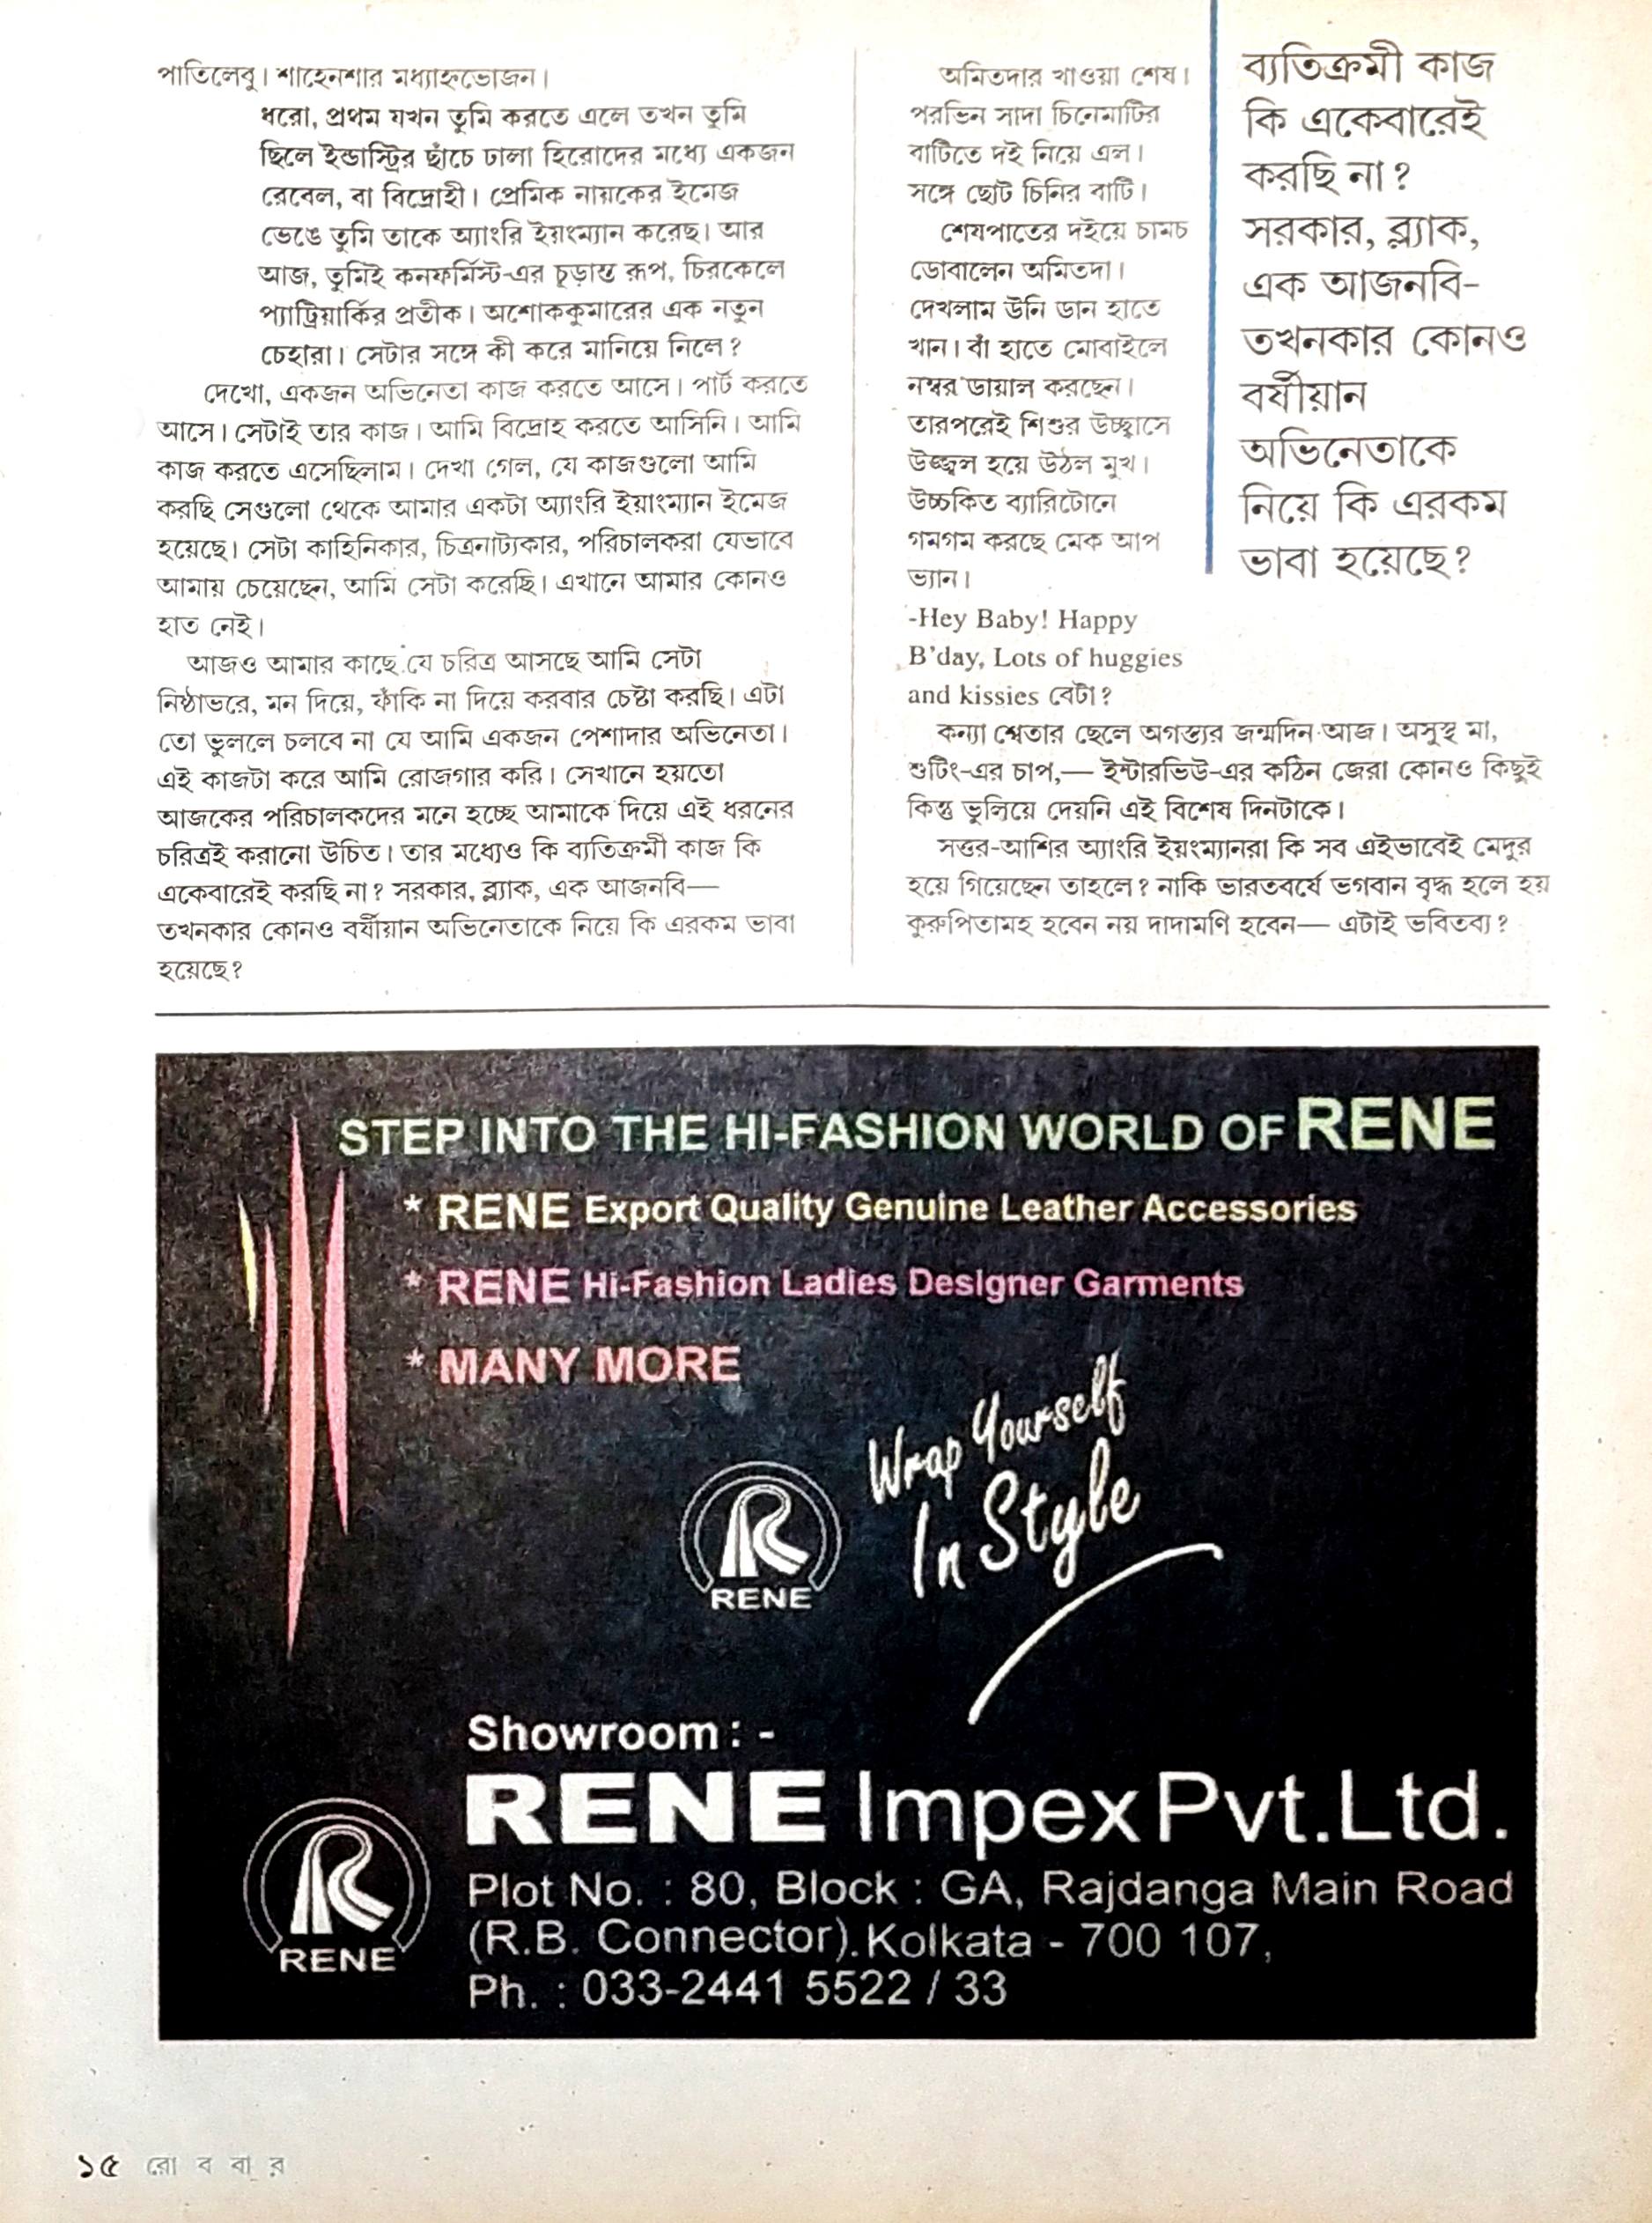 পাতিলেবু। শাহেনশার মধ্যাহ্নভোজন।
ধরো, প্রথম যখন তুমি করতে এলে তখন তুমি
ছিলে ইন্ডাস্ট্রির ছাঁচে ঢালা হিরোদের মধ্যে একজন
রেবেল, বা বিদ্রোহী। প্রেমিক নায়কের ইমেজ
ভেঙে তুমি তাকে অ্যাংরি ইয়ংম্যান করেছ। আর
আজ, তুমিই কনফর্মিস্ট-এর চূড়ান্ত রূপ, চিরকেলে
প্যাট্রিয়ার্কির প্রতীক। অশোককুমারের এক নতুন
চেহারা। সেটার সঙ্গে কী করে মানিয়ে নিলে?
দেখো, একজন অভিনেতা কাজ করতে আসে। পার্ট করতে
আসে। সেটাই তার কাজ। আমি বিদ্রোহ করতে আসিনি। আমি
কাজ করতে এসেছিলাম। দেখা গেল, যে কাজগুলো আমি
করছি সেগুলো থেকে আমার একটা অ্যাংরি ইয়াংম্যান ইমেজ
হয়েছে। সেটা কাহিনিকার, চিত্রনাট্যকার, পরিচালকরা যেভাবে
আমায় চেয়েছেন, আমি সেটা করেছি। এখানে আমার কোনও
হাত নেই।
আজও আমার কাছে যে চরিত্র আসছে আমি সেটা
নিষ্ঠাভরে, মন দিয়ে, ফাঁকি না দিয়ে করবার চেষ্টা করছি। এটা
তো ভুললে চলবে না যে আমি একজন পেশাদার অভিনেতা।
এই কাজটা করে আমি রোজগার করি। সেখানে হয়তো
আজকের পরিচালকদের মনে হচ্ছে আমাকে দিয়ে এই ধরনের
চরিত্রই করানো উচিত। তার মধ্যেও কি ব্যতিক্রমী কাজ কি
একেবারেই করছি না? সরকার, ব্ল্যাক, এক আজনবি—
তখনকার কোনও বর্ষীয়ান অভিনেতাকে নিয়ে কি এরকম ভাবা
হয়েছে?
অমিতদার খাওয়া শেষ।
পরভিন সাদা চিনেমাটির
বাটিতে দই নিয়ে এল।
সঙ্গে ছোট চিনির বাটি।
শেষপাতের দইয়ে চামচ
ডোবালেন অমিতদা।
দেখলাম উনি ডান হাতে
খান। বাঁ হাতে মোবাইলে
নম্বর ডায়াল করছেন।
তারপরেই শিশুর উচ্ছ্বাসে
উজ্জ্বল হয়ে উঠল মুখ।
উচ্চকিত ব্যারিটোনে
গমগম করছে মেক আপ
ভ্যান।
-Hey Baby! Happy
B'day, Lots of huggies
and kissies বেটা?
কন্যা শ্বেতার ছেলে অগস্ত্যর জন্মদিন আজ। অসুস্থ মা,
শুটিং-এর চাপ,— ইন্টারভিউ-এর কঠিন জেরা কোনও কিছুই
কিন্তু ভুলিয়ে দেয়নি এই বিশেষ দিনটাকে।
সত্তর-আশির অ্যাংরি ইয়ংম্যানরা কি সব এইভাবেই মেদুর
হয়ে গিয়েছেন তাহলে? নাকি ভারতবর্ষে ভগবান বৃদ্ধ হলে হয়
কুরুপিতামহ হবেন নয় দাদামণি হবেন— এটাই ভবিতব্য?
ব্যতিক্রমী কাজ
কি একেবারেই
করছি না?
সরকার, ব্ল্যাক,
এক আজনবি-
তখনকার কোনও
বর্ষীয়ান
অভিনেতাকে
নিয়ে কি এরকম
ভাবা হয়েছে?
STEP INTO THE HI-FASHION WORLD OF RENE
* RENE Export Quality Genuine Leather Accessories
* RENE Hi-Fashion Ladies Designer Garments
* MANY MORE
Wrap Yourself
In Style
RENE
Showroom : -
RENE Impex Pvt.Ltd.
Plot No. : 80, Block : GA, Rajdanga Main Road
(R.B. Connector). Kolkata - 700 107,
Ph. : 033-2441 5522 / 33
RENE
১৫ রো ব বা র